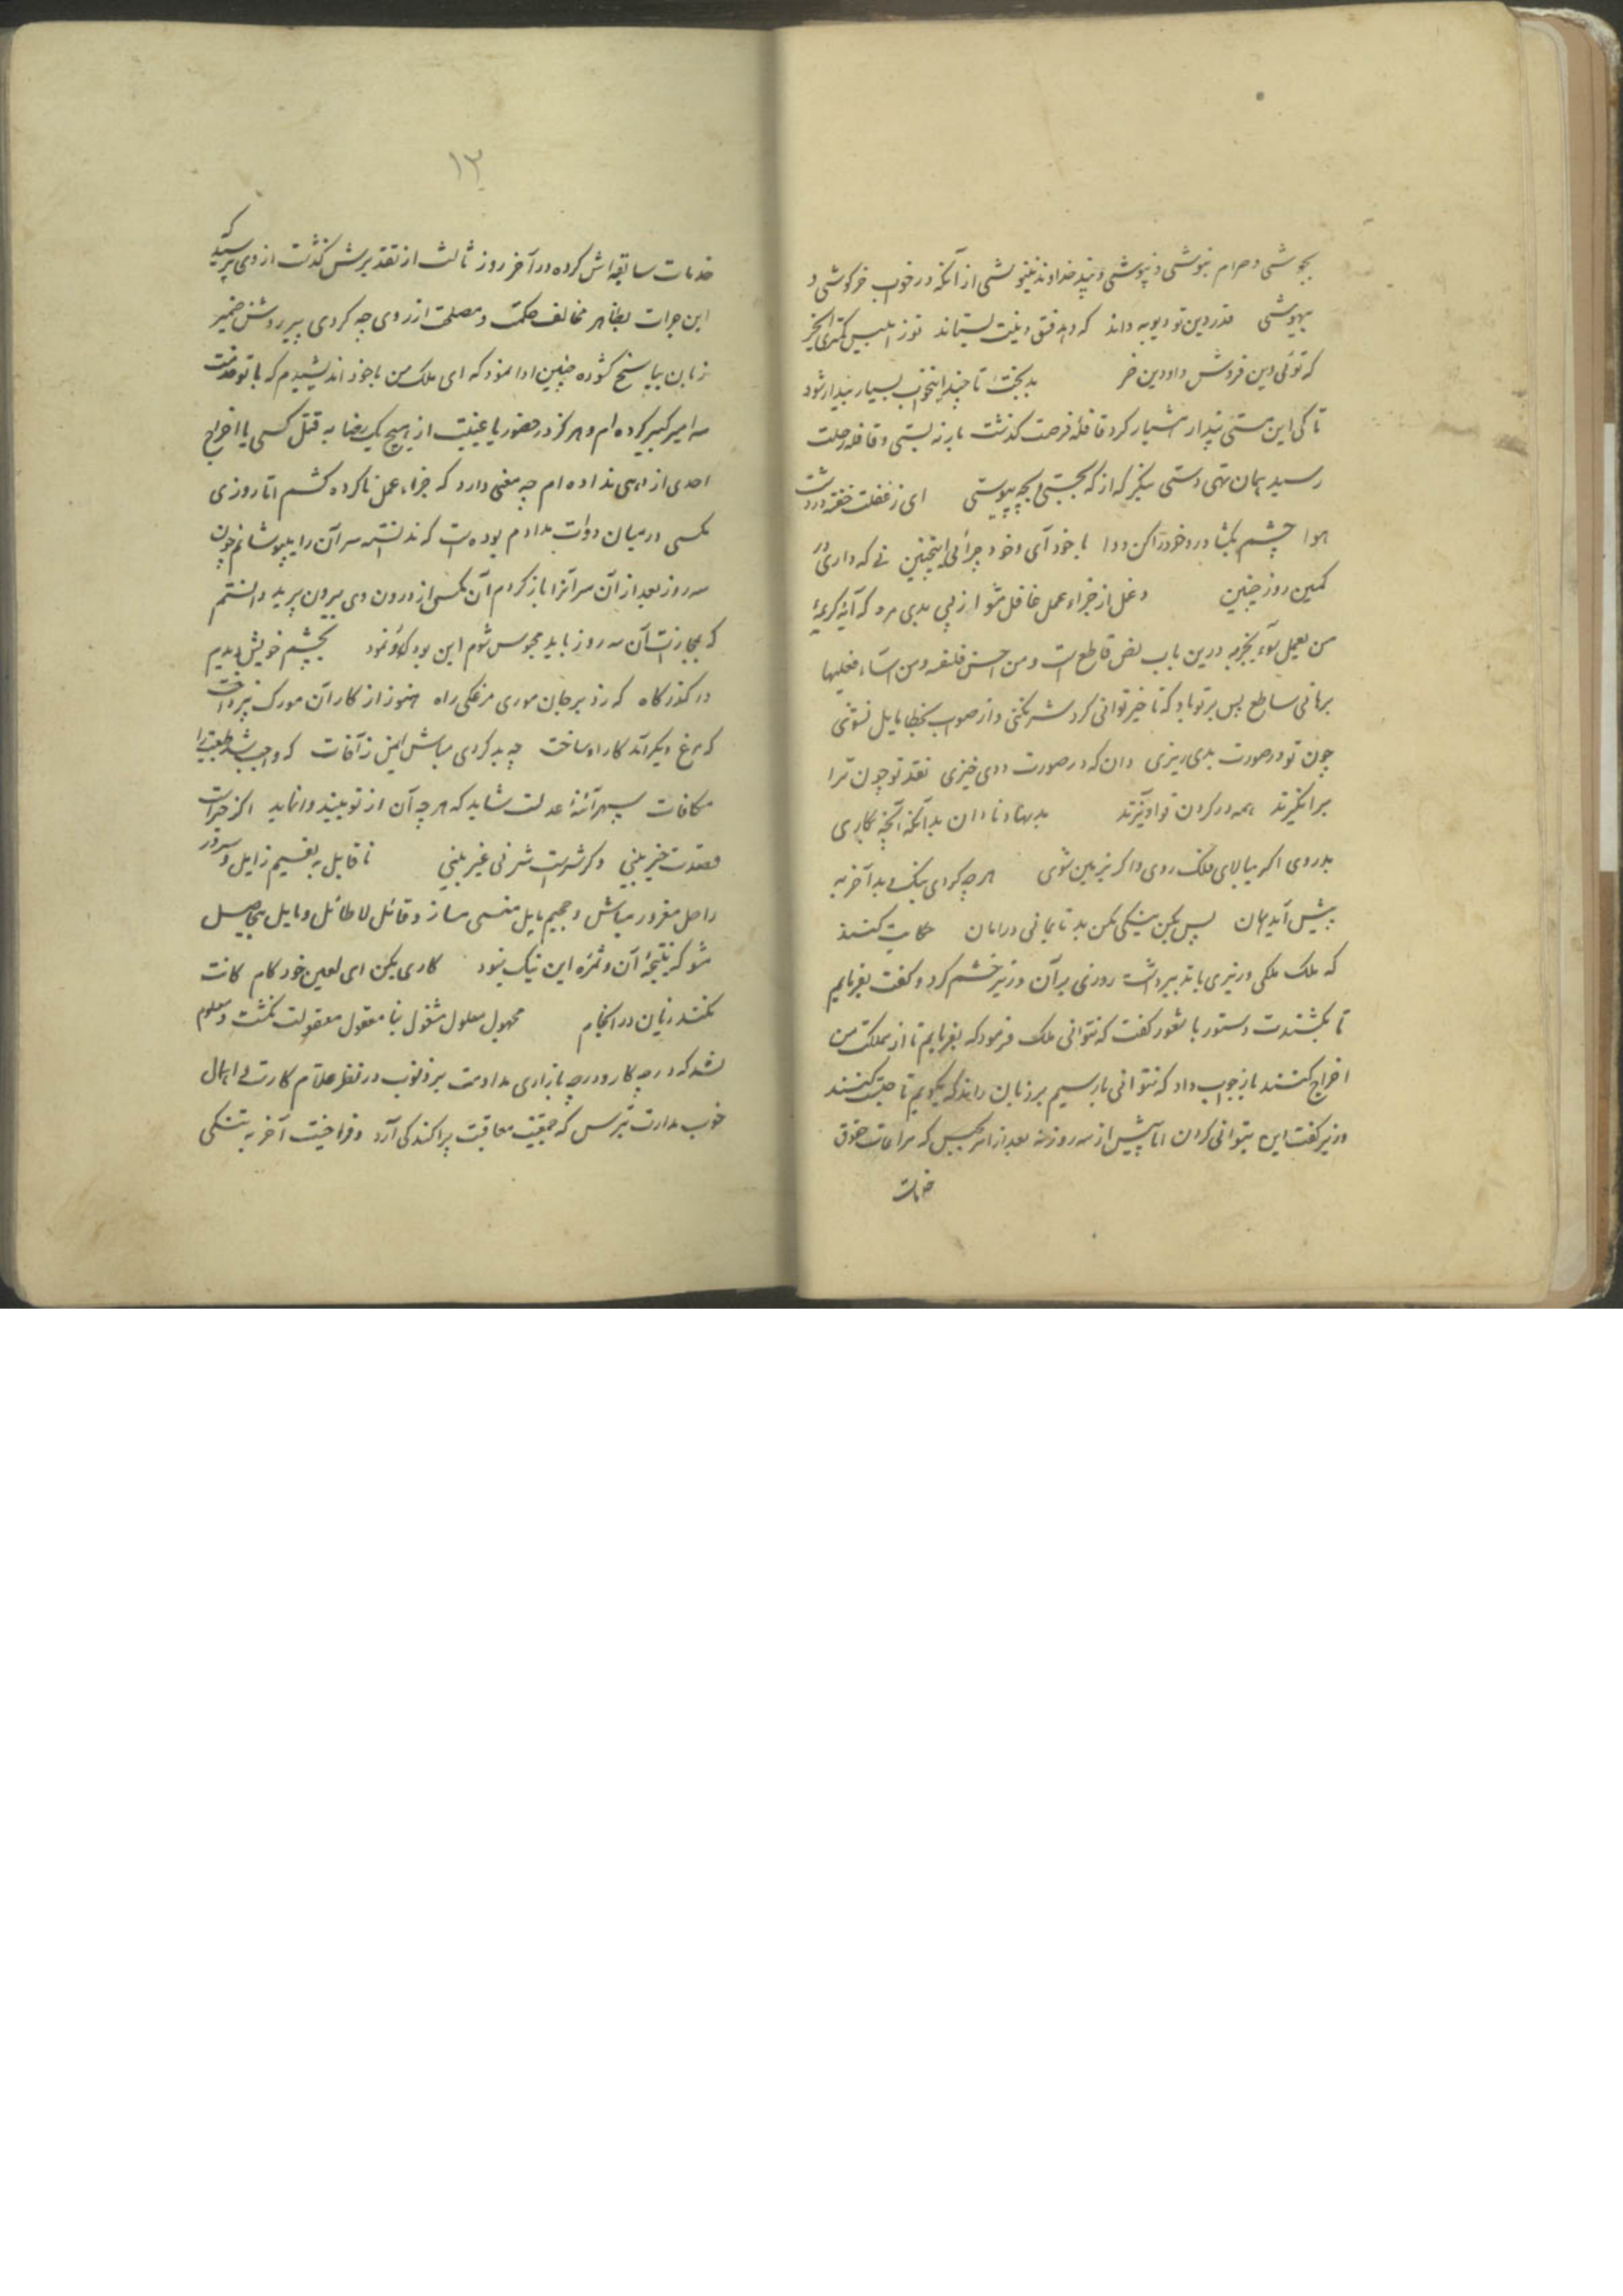 بجوشی و حرام بنوشی و نپوشی و پند خداوند ننیوشی از آنکه در خواب خرکوشی و
بیهوشی قدر دین تو دیو به داند که دهد فسق و دینت بستاند تو ز ابلیس کمتری ای خر
که توئی دین فروش و او دین خر بدبختا تا چند اینخواب بسیار بیدار شو و
تا کی این مستی پندار هشیار کرد قافلهٔ فرصت کذشت بار نه بستی و قافله رحلت
رسید همان تهی دستی بنکر که از که بجستی و بچه پیوستی ای ز غفلت خفته در دشت
هوا چشم بکشا درد خود را کن دوا با خود آی و خود چرائی اینچنین نی که داری در
کمین روز چنین و غل از جزاء عمل غافل مشو از پی بدی مرو که آیهٔ کریمهٔ
من یعمل سوء یجز به درین باب نص قاطع است و من احسن فلنفسه و من اساء فعلیها
برهانی ساطع پس بر تو باد که تا خیر توانی کرد شر نکنی و از صوب بخطا مایل نشوی
چون تو در صورت بدی ریزی دان که در صورت ددی خیزی نقد تو چون ترا
برانکیزند همه در کردن تو آویزند بد بهتا نادان بدانکه آنچه کاری
بدروی اکر ببالای فلک روی و اکر بزیر زمین شوی هر چه کردی نیک و بد آخر به
پیش آید همان پس بکن نیکی مکن بد تا بمانی در امان حکایت کنند
که ملک ملکی وزیری با تدبیر داشت روزی بر آن وزیر خشم کرد و کفت بفرمایم
تا بکشندت دستور با شعور کفت که نتوانی ملک فرمود که بفرمایم تا از مملکت من
اخراج کنند باز جواب داد که نتوانی بار سیم بر زبان راند که بکویم تا حبست کنند
وزیر کفت این بتوانی کردن اما پیش از سه روز نه بعد از امر بحبس که مراعات حقوق
خدمات
١٣
خدمات سابقه‌اش کرده در آخر روز ثالث از تقدیرش کذشت از وی پرسید که
این جرات بظاهر مخالف حکمت و مصلحت از روی چه کردی پیر روشن ضمیر
زبان بپاسخ کشوده چنین ادا نمود که ای ملک من با خود اندیشیدم که با تو خدمت
سه امیر کبیر کرده‌ام و هرکز در حضور یا غیبت از هیچ یک رضا به قتل کسی یا اخراج
احدی از دهی نداده‌ام چه معنی دارد که جزاء عمل ناکرده کشم اما روزی
مکسی در میان دوات مدادم بوده است که ندانسته سر آن را بپوشانم چون
سه روز بعد از آن سر آنرا باز کردم آن مکس از درون وی بیرون پرید دانستم
که بمجازات آن سه روز باید محبوس شوم این بود که رو نمود بچشم خویش دیدم
در کذرکاه که زد بر جان موری مرغکی راه هنوز از کار آن مورک نپرداخت
که مرغ دیکر آمد کار او ساخت چه بد کردی مباش ایمن ز آفات که واجب شد طبیعت را
مکافات سپهر آئنهٔ عدلست شاید که هر چه آن از تو بیند وا نماید اکر خیرات
قصدت خیر بینی و کر شر است شر نی غیر بینی ناقابل به نعیم زایل و سرور
راحل مغرور مباش و جحیم هایل منسی مساز و قائل لا طائل و مایل بیحاصل
مشو کز نتیجهٔ آن و ثمره این نیک نبود کاری مکن ای لعین خود کام کانت
نکند زیان در انجام مجهول معلول مشغول بنا معقول معقولت نکشت و معلوم
نشد که در چه کار و در چه بازاری مداومت بر ذنوب در نظر علام کارت بی اهمال
خوب مدارت بترس که جمعیت معاقبت پراکندکی آرد و فراخیت آخر به تنکی